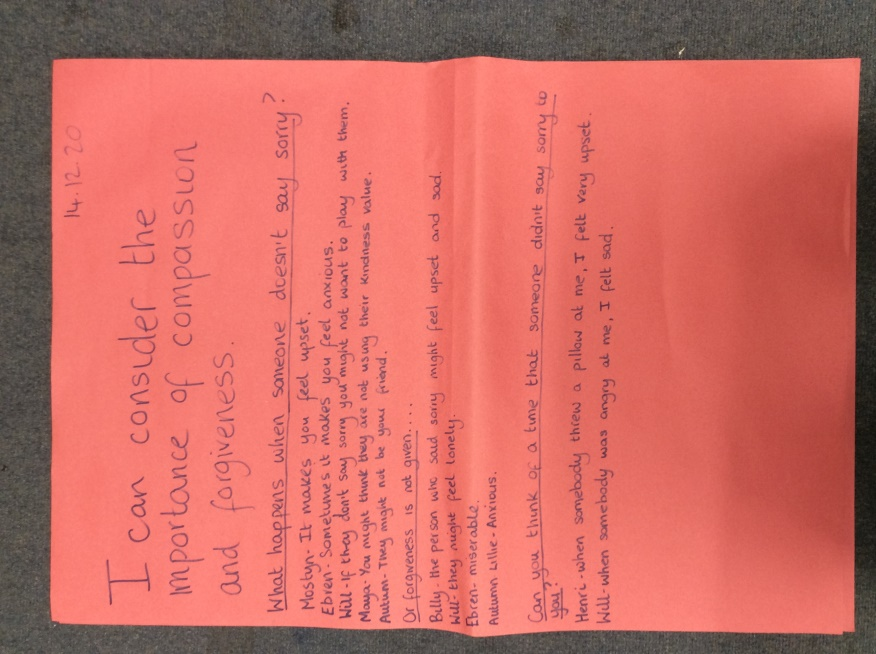 14.12.20
I can consider the
importance of compassion
and forgiveness.
What happens when someone doesn't say sorry?
Mostyn - It makes you feel upset.
Ebren - Sometimes it makes you feel anxious.
Will - If they don't say sorry you might not want to play with them.
Maya - You might think they are not using their kindness value.
Autum - They might not be your friend.
Or forgiveness is not given....
Billy - the person who said sorry might feel upset and sad.
Will - they might feel lonely.
Ebren - miserable.
Autumn Lillie - Anxious.
Can you think of a time that someone didn't say sorry to
you?
Henri - when somebody threw a pillow at me, I felt very upset.
Will - when somebody was angry at me, I felt sad.